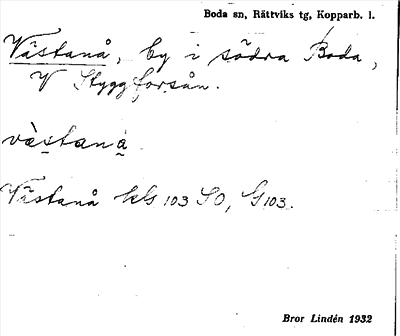 Boda sn, Rättviks tg, Kopparb. l.
Västanå, by i södra Boda,
V Styggforsån.
västanå
Västanå kG 103 SO, G 103.
Bror Lindén 1932